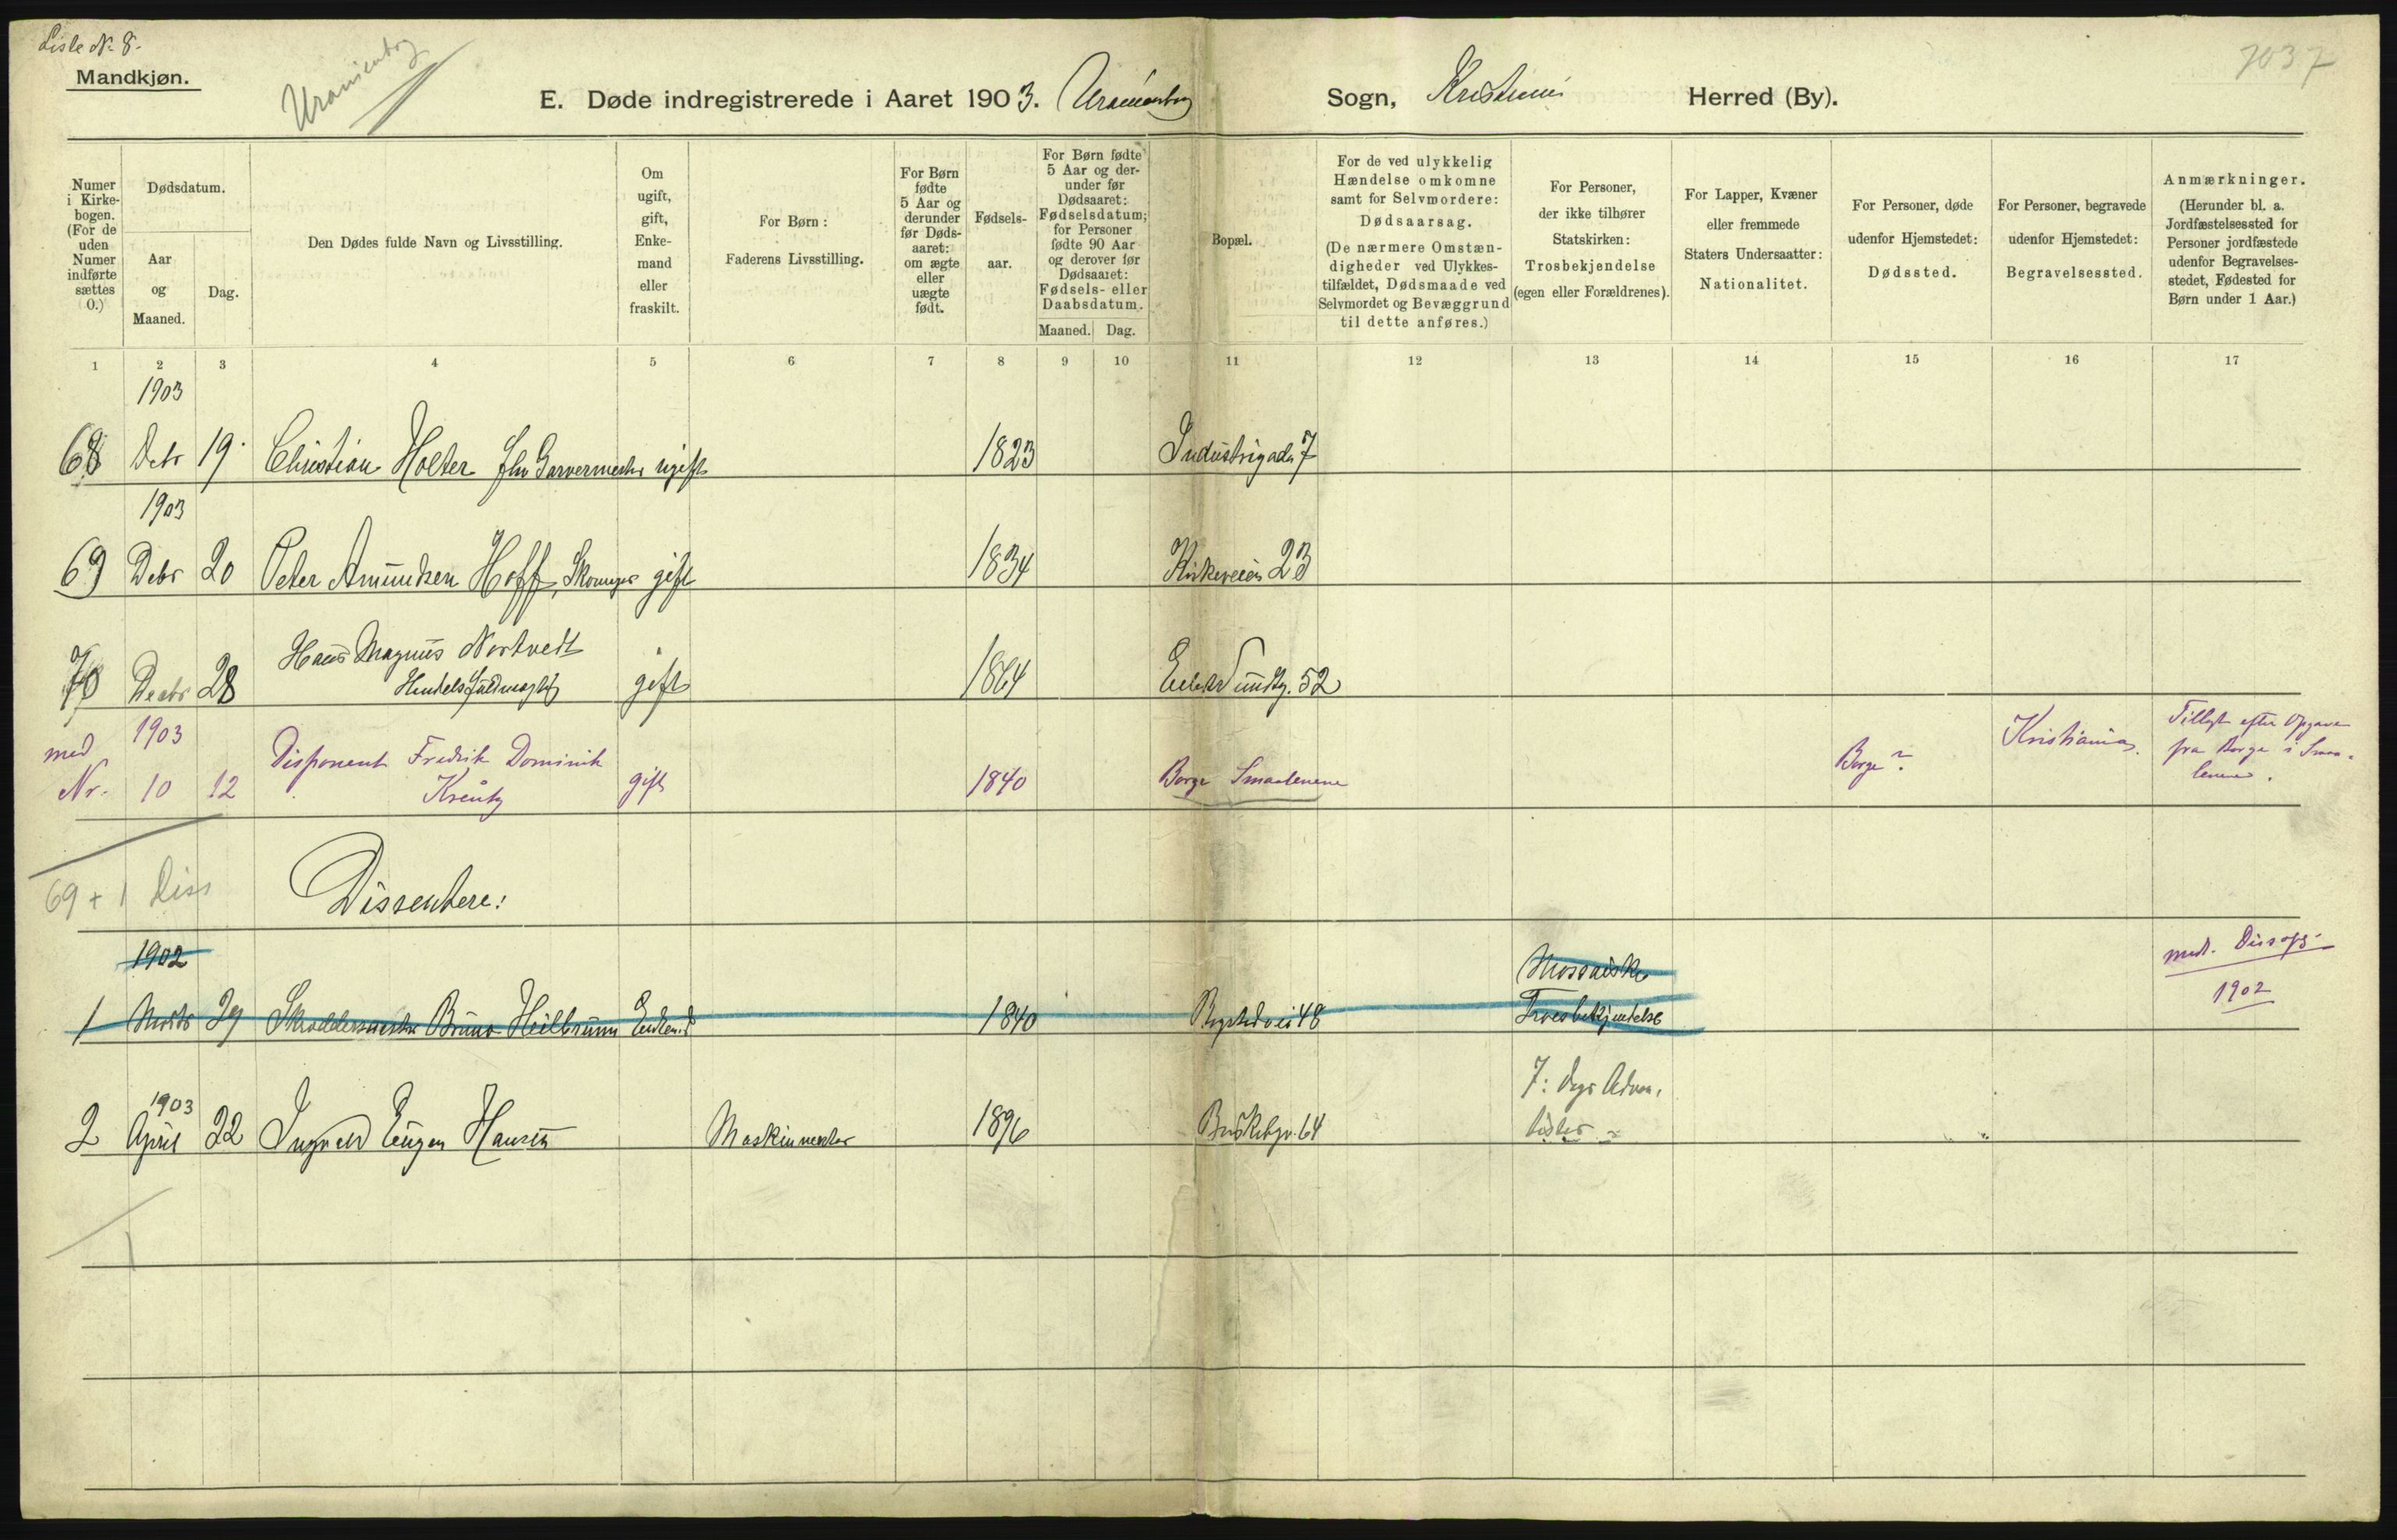 Liste No. 8.
Mandkjøn.
Uranienborg
E. Døde indregistrerede i Aaret 1903. Uranienborg Sogn, Kristiania Herred (By).
7037
Numer i Kirkebogen. (For de uden Numer indførte sættes 0.)
Dødsdatum.
Aar og Maaned.
Dag.
Den Dødes fulde Navn og Livsstilling.
Om ugift, gift, Enkemand eller fraskilt.
For Børn: Faderens Livsstilling.
For Børn fødte 5 Aar og derunder før Dødsaaret: om ægte eller uægte født.
Fødselsaar.
For Børn fødte 5 Aar og derunder før Dødsaaret: Fødselsdatum; for Personer fødte 90 Aar og derover før Dødsaaret: Fødsels- eller Daabsdatum.
Maaned. Dag.
Bopæl.
For de ved ulykkelig Hændelse omkomne samt for Selvmordere: Dødsaarsag. (De nærmere Omstændigheder ved Ulykkestilfældet, Dødsmaade ved Selvmordet og Bevæggrund til dette anføres.)
For Personer, der ikke tilhører Statskirken: Trosbekjendelse (egen eller Forældrenes).
For Lapper, Kvæner eller fremmede Staters Undersaatter: Nationalitet.
For Personer, døde udenfor Hjemstedet: Dødssted.
For Personer, begravede udenfor Hjemstedet: Begravelsessted.
Anmærkninger. (Herunder bl. a. Jordfæstelsessted for Personer jordfæstede udenfor Begravelsesstedet, Fødested for Børn under 1 Aar.)
1 2 3 4 5 6 7 8 9 10 11 12 13 14 15 16 17
1903
68 Debr 19. Christian Holter fhv Garvermester ugift 1823 Industrigaden 7
1903
69 Debr 20 Peter Amundsen Hoff, Skomager gift 1834 Kirkeveien 23
Hans Magnus Nortvedt
70 Decbr 28 Handelsfuldmægtig gift 1864 Eilert Sundtg. 52
med 1903 Disponent Fredrik Dominik Borge ? Kristiania. Tillagt efter Opgave
fra Borge i Smaa-
Nr. 10 12 Kreutz gift 1840 Borge Smaalenene lenene.
69 + 1 Diss
Dissentere:
1902 Mosaiske medt. Dissopg.
1 Marts 29 Skræddermester Bruno Heilbrunn Enkemd 1840 Bygdøvei 48 Troesbekjendelse 1902
1903 7: Dags Adven.
2 April 22 Ingvald Eugen Hansen Maskinmester 1896 Briskebyv. 64 tister
1